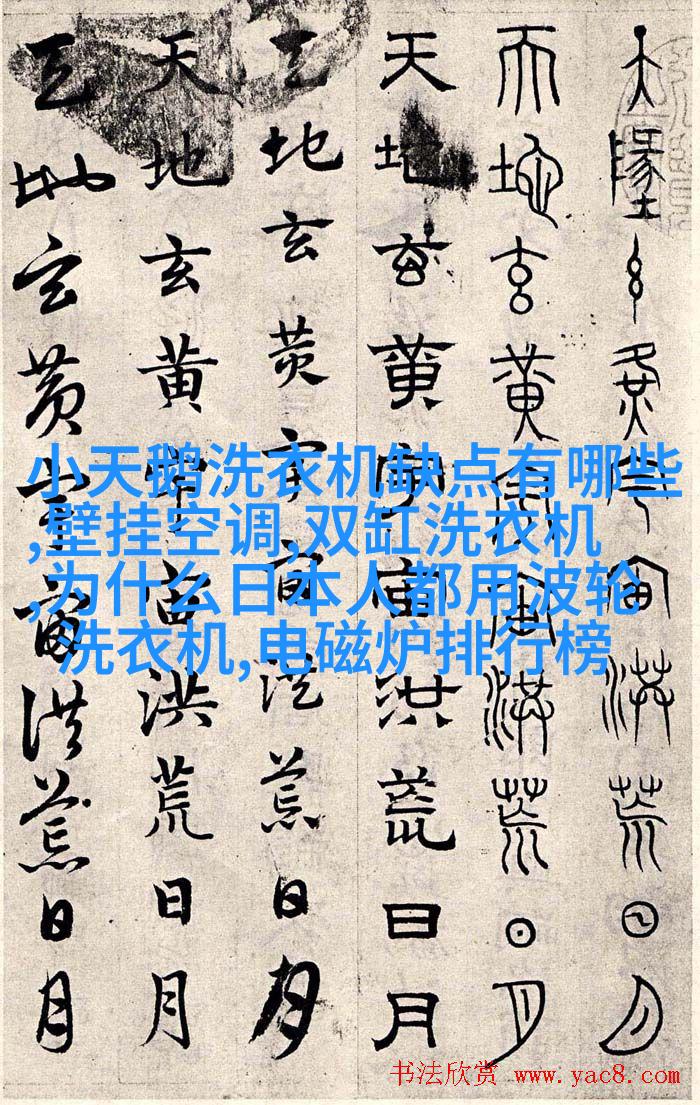 天墬玄黄宇宙洪荒日月
天地玄黄宇宙洪荒日月
天地玄黄宇宙洪荒日月
天地玄黄宇宙洪荒日月
天地玄黄宇宙洪荒日月
天地玄黄宇宙洪荒日月
小天鹅洗衣机缺点有哪些
,壁挂空调,双缸洗衣机
,为什么日本人都用波轮
洗衣机,电磁炉排行榜
书法欣赏 www.yac8.com